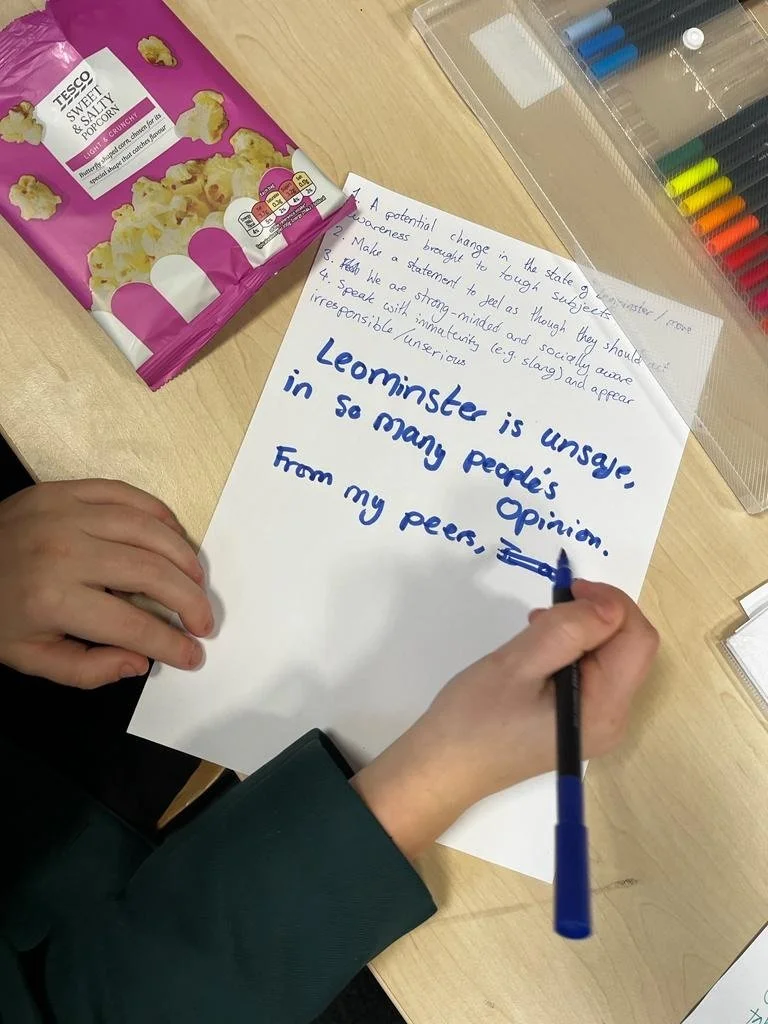 TESCO
SWEET
& SALTY
POPCORN
LIGHT & CRUNCHY
Butterfly shaped corn, chosen for its
special shape that catches flavour
1. A potential change in the state of Leominster / more
awareness brought to tough subjects
2. Make a statement to feel as though they should act
3. We are strong-minded and socially aware
4. Speak with immaturity (e.g. slang) and appear
irresponsible/unserious
Leominster is unsafe,
in so many people's
Opinion.
From my peers,